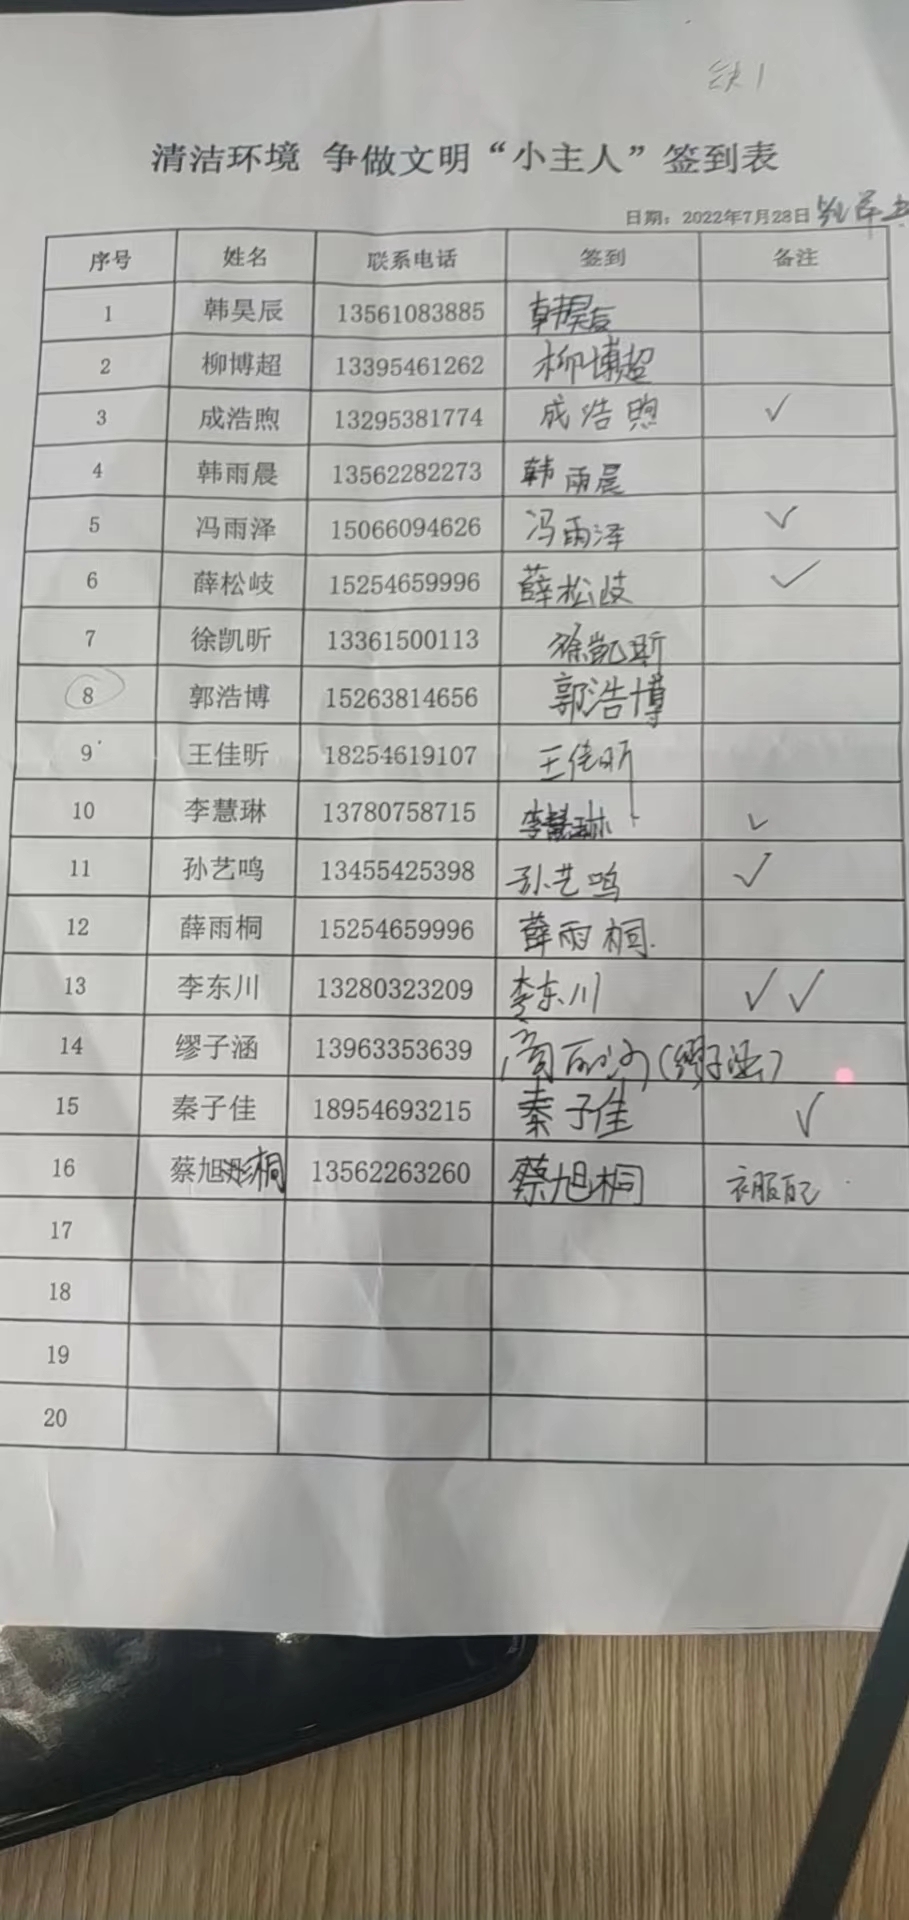 缺1
清洁环境 争做文明“小主人”签到表
日期：2022年7月28日
序号 姓名 联系电话 签到 备注
1 韩昊辰 13561083885 韩昊辰
2 柳博超 13395461262 柳博超
3 成浩煦 13295381774 成浩煦 ✓
4 韩雨晨 13562282273 韩雨晨
5 冯雨泽 15066094626 冯雨泽 ✓
6 薛松岐 15254659996 薛松岐 ✓
7 徐凯昕 13361500113 徐凯昕
8 郭浩博 15263814656 郭浩博
9 王佳昕 18254619107 王佳昕
10 李慧琳 13780758715 李慧琳 ✓
11 孙艺鸣 13455425398 孙艺鸣 ✓
12 薛雨桐 15254659996 薛雨桐
13 李东川 13280323209 李东川 ✓ ✓
14 缪子涵 13963353639 (缪子涵)
15 秦子佳 18954693215 秦子佳 ✓
16 蔡旭桐 13562263260 蔡旭桐 衣服自己
17
18
19
20